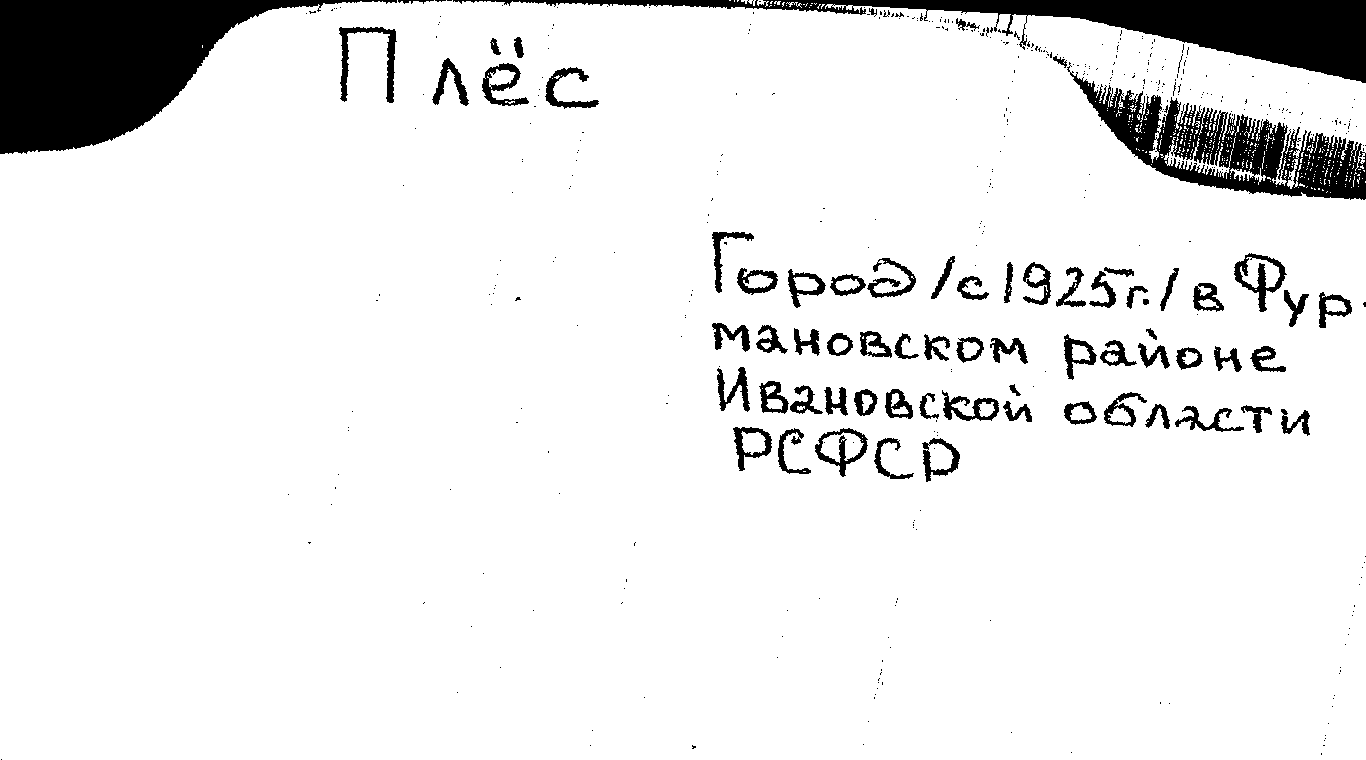 Плёс
Город /с 1925г./ в Фур-
мановском районе
Ивановской области
РСФСР